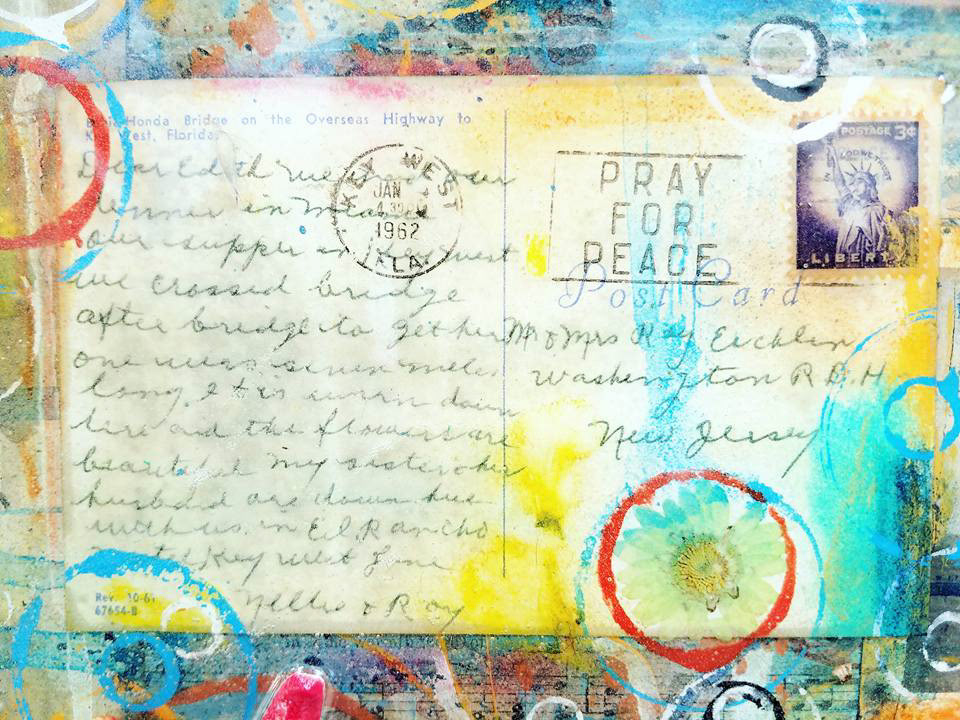 Honda Bridge on the Overseas Highway to
West, Florida.
Dear Edith we had our
dinner in Miami
our supper in Key West
we crossed bridge
after bridge to get here
one was seven miles
long. It is warm down
here and the flowers are
beautiful my sister & her
husband are down here
with us. in El Rancho
Key West Love
Nellie & Roy
Rev. 10-61
67654-B
KEY WEST
JAN
1962
FLA.
PRAY
FOR
PEACE
POSTAGE 3¢
IN GOD WE TRUST
LIBERTY
Post Card
Mr & Mrs Roy Eichlin
Washington R.D.
New Jersey